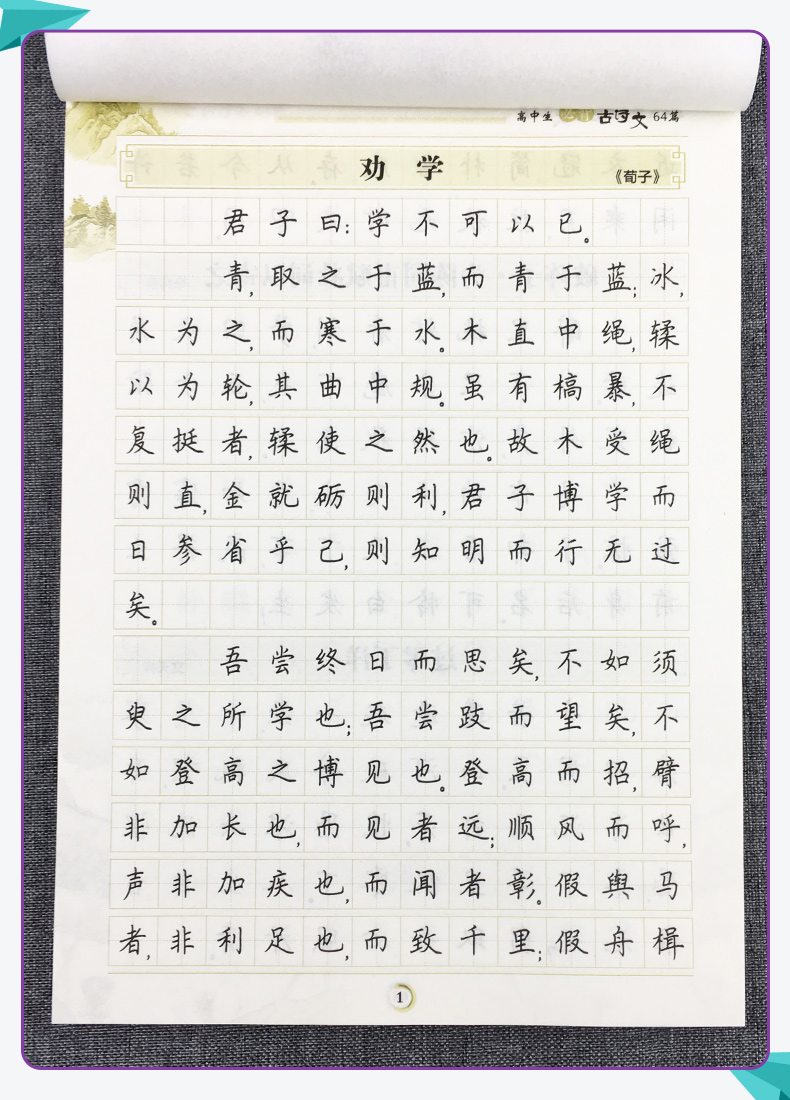 高中生必背古诗文64篇
劝学
《荀子》
君子曰:学不可以已。
青,取之于蓝,而青于蓝;冰,
水为之,而寒于水。木直中绳,鞣
以为轮,其曲中规。虽有槁暴,不
复挺者,鞣使之然也。故木受绳
则直,金就砺则利,君子博学而
日参省乎己,则知明而行无过
矣。
吾尝终日而思矣,不如须
臾之所学也;吾尝跂而望矣,不
如登高之博见也。登高而招,臂
非加长也,而见者远;顺风而呼,
声非加疾也,而闻者彰。假舆马
者,非利足也,而致千里;假舟楫
1